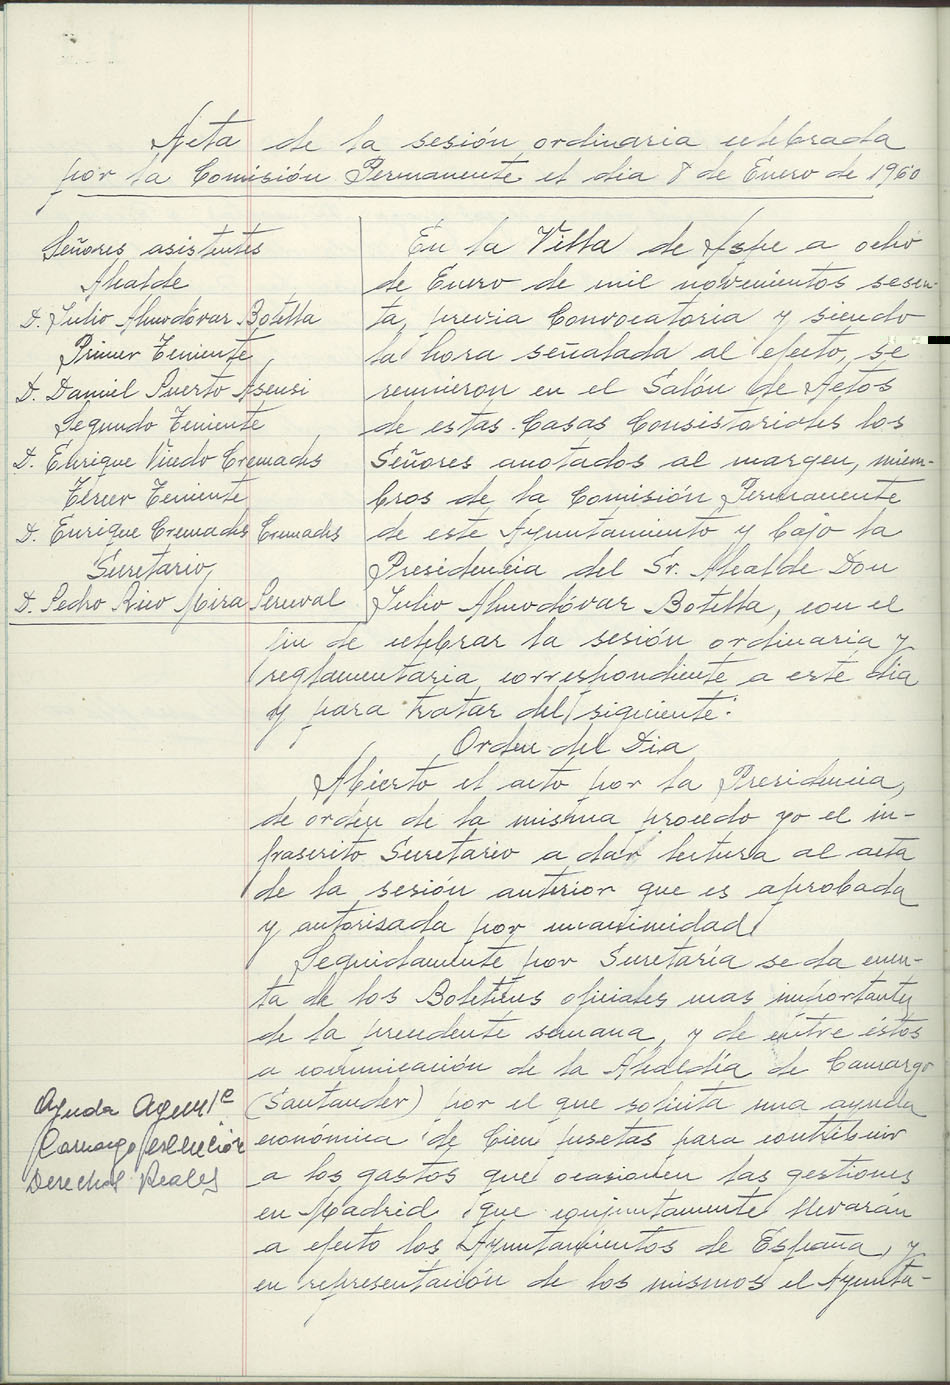 Acta de la sesión ordinaria celebrada
por la Comisión Permanente el dia 8 de Enero de 1960
Señores asistentes
Alcalde
D. Julio Almodóvar Botella
Primer Teniente
D. Daniel Puerto Asensi
Segundo Teniente
D. Enrique Vicedo Cremades
Tercer Teniente
D. Enrique Cremades Cremades
Secretario
D. Pedro Rico Mira Perceval
En la Villa de Aspe a ocho
de Enero de mil novecientos sesen-
ta, previa Convocatoria y siendo
la hora señalada al efecto, se
reunieron en el Salón de Actos
de estas Casas Consistoriales los
Señores anotados al margen, miem-
bros de la Comisión Permanente
de este Ayuntamiento y bajo la
Presidencia del Sr. Alcalde Don
Julio Almodóvar Botella, con el
fin de celebrar la sesión ordinaria y
reglamentaria correspondiente a este dia
y para tratar del siguiente:
Orden del Dia
Abierto el acto por la Presidencia,
de orden de la misma procedo yo el in-
frascrito Secretario a dar lectura al acta
de la sesión anterior que es aprobada
y autorisada por unanimidad
Seguidamente por Secretaría se da cuen-
ta de los Boletines oficiales mas importantes
de la precedente semana, y de entre éstos
a comunicación de la Alcaldía de Camargo
(Santander) por el que solicita una ayuda
económica de Cien pesetas para contribuir
a los gastos que ocasionen las gestiones
en Madrid que conjuntamente llevarán
a efecto los Ayuntamientos de España, y
en representación de los mismos el Ayunta-
Ayuda
Camargo
Derechos Reales